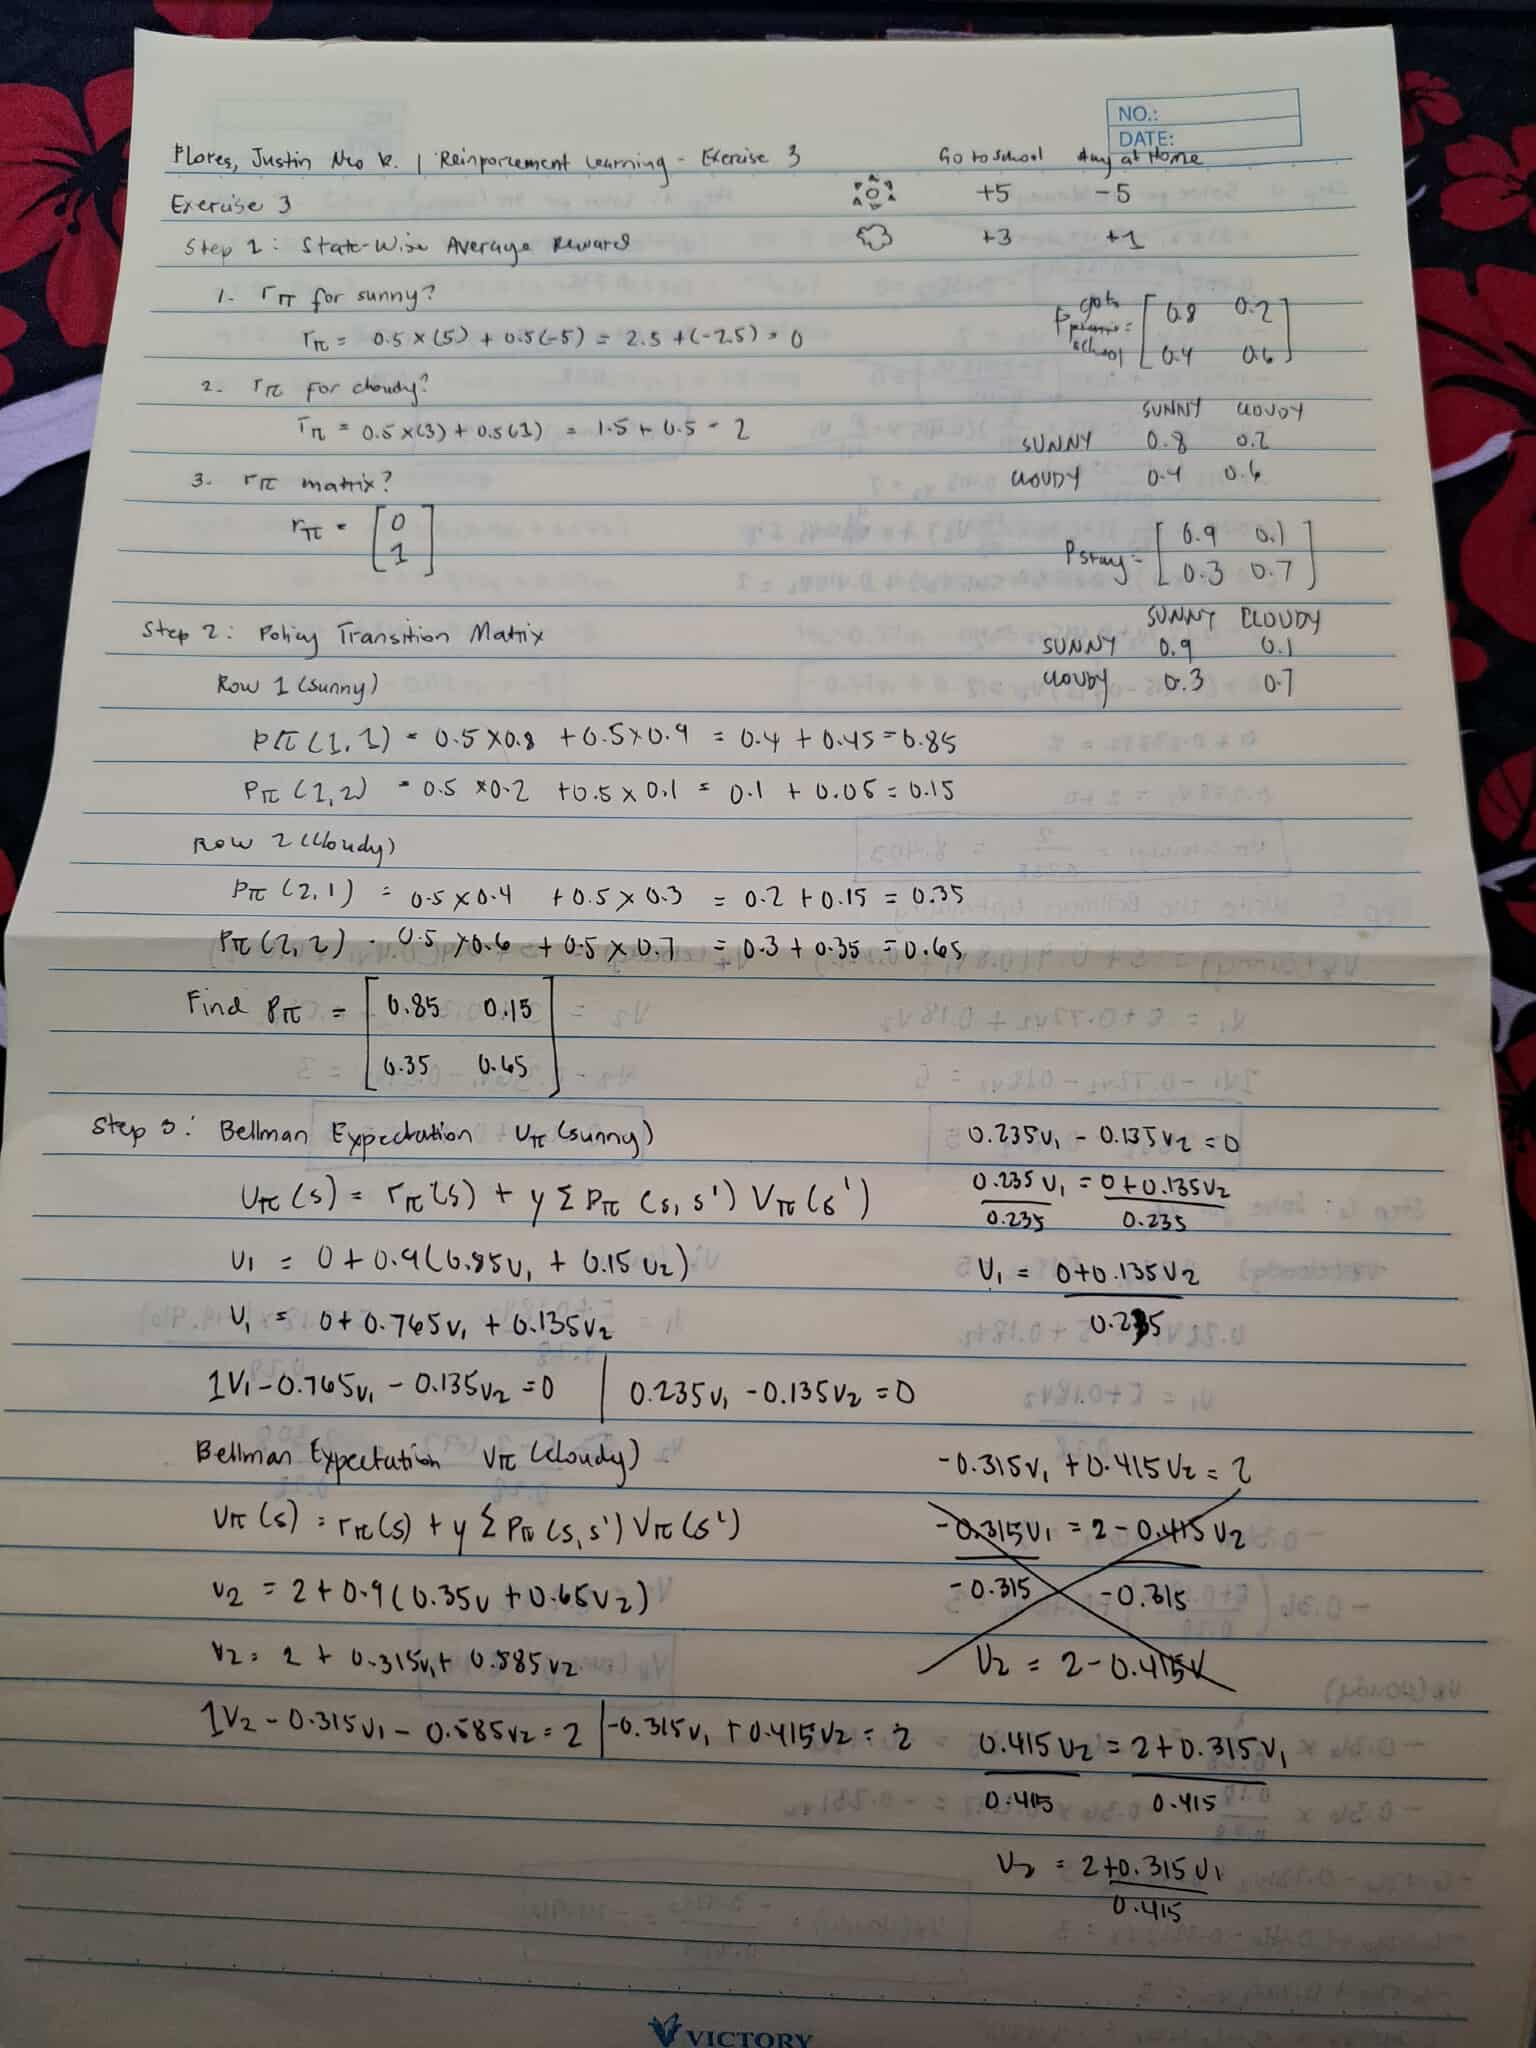 NO.:
DATE:
Flores, Justin Neo K. | Reinforcement Learning - Exercise 3
Go to school Stay at Home
Exercise 3
+5 -5
Step 1: State-Wise Average Reward
+3 +1
1. rπ for sunny?
rπ = 0.5 x (5) + 0.5(-5) = 2.5 +(-2.5) = 0
2. rπ for cloudy?
rπ = 0.5 x (3) + 0.5(1) = 1.5 + 0.5 = 2
3. rπ matrix?
rπ = [0
1]
P goto school = [0.8 0.2
0.4 0.6]
SUNNY CLOUDY
SUNNY 0.8 0.2
CLOUDY 0.4 0.6
Pstay = [0.9 0.1
0.3 0.7]
SUNNY CLOUDY
SUNNY 0.9 0.1
CLOUDY 0.3 0.7
Step 2: Policy Transition Matrix
Row 1 (Sunny)
Pπ (1,1) = 0.5 x 0.8 + 0.5 x 0.9 = 0.4 + 0.45 = 0.85
Pπ (1,2) = 0.5 x 0.2 + 0.5 x 0.1 = 0.1 + 0.05 = 0.15
Row 2 (Cloudy)
Pπ (2,1) = 0.5 x 0.4 + 0.5 x 0.3 = 0.2 + 0.15 = 0.35
Pπ (2,2) = 0.5 x 0.6 + 0.5 x 0.7 = 0.3 + 0.35 = 0.65
Find Pπ = [0.85 0.15
0.35 0.65]
Step 3: Bellman Expectation Vπ (sunny)
Vπ (s) = rπ(s) + y Σ Pπ (s, s') Vπ (s')
V1 = 0 + 0.9(0.85V1 + 0.15 V2)
V1 = 0 + 0.765V1 + 0.135V2
1V1 - 0.765V1 - 0.135V2 = 0 | 0.235V1 - 0.135V2 = 0
0.235V1 - 0.135V2 = 0
0.235V1 = 0 + 0.135V2
0.235 0.235
V1 = 0 + 0.135V2
0.235
Bellman Expectation Vπ (cloudy)
Vπ (s) = rπ(s) + y Σ Pπ (s, s') Vπ (s')
V2 = 2 + 0.9(0.35V + 0.65V2)
V2 = 2 + 0.315V1 + 0.585V2
1V2 - 0.315V1 - 0.585V2 = 2 | -0.315V1 + 0.415V2 = 2
-0.315V1 + 0.415V2 = 2
-0.315V1 = 2 - 0.415V2
-0.315 -0.315
V2 = 2 - 0.415V
0.415V2 = 2 + 0.315V1
0.415 0.415
V2 = 2 + 0.315V1
0.415
VICTORY